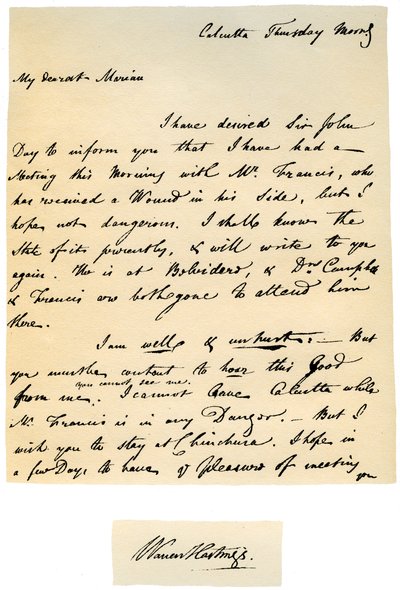 Calcutta Thursday Morng
My dearest Marian
I have desired Sir John
Day to inform you that I have had a
Meeting this Morning with Mr. Francis, who
has received a Wound in his Side, but I
hope not dangerous. I shall know the
State of it presently, & will write to you
again. He is at Belvidere, & Drs Campbell
& Francis are both gone to attend him
there.
I am well & unhurt. — But
you must be content to hear this Good
from me. you cannot see me. I cannot leave Calcutta while
Mr. Francis is in any Danger. — But I
wish you to stay at Chinchura. I hope in
a few Days to have ye pleasure of meeting
you
Warren Hastings.